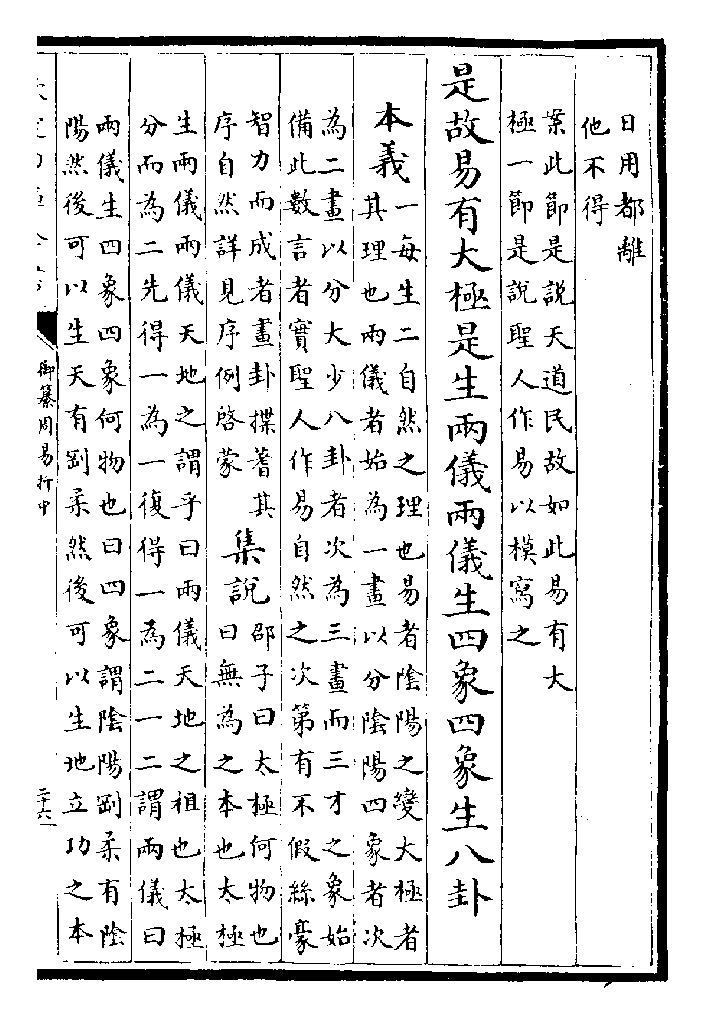 日用都離
他不得
案此節是說天道民故如此易有大
極一節是說聖人作易以模寫之
是故易有大極是生兩儀兩儀生四象四象生八卦
本義
一每生二自然之理也易者陰陽之變大極者
其理也兩儀者始為一畫以分陰陽四象者次
為二畫以分大少八卦者次為三畫而三才之象始
備此數言者實聖人作易自然之次第有不假絲毫
智力而成者畫卦揲蓍其
序自然詳見序例啓蒙
集說
邵子曰太極何物也
曰無為之本也太極
生兩儀兩儀天地之謂乎曰兩儀天地之祖也太極
分而為二先得一為一復得一為二一二謂兩儀曰
兩儀生四象四象何物也曰四象謂陰陽剛柔有陰
陽然後可以生天有剛柔然後可以生地立功之本
御纂周易折中
二十六